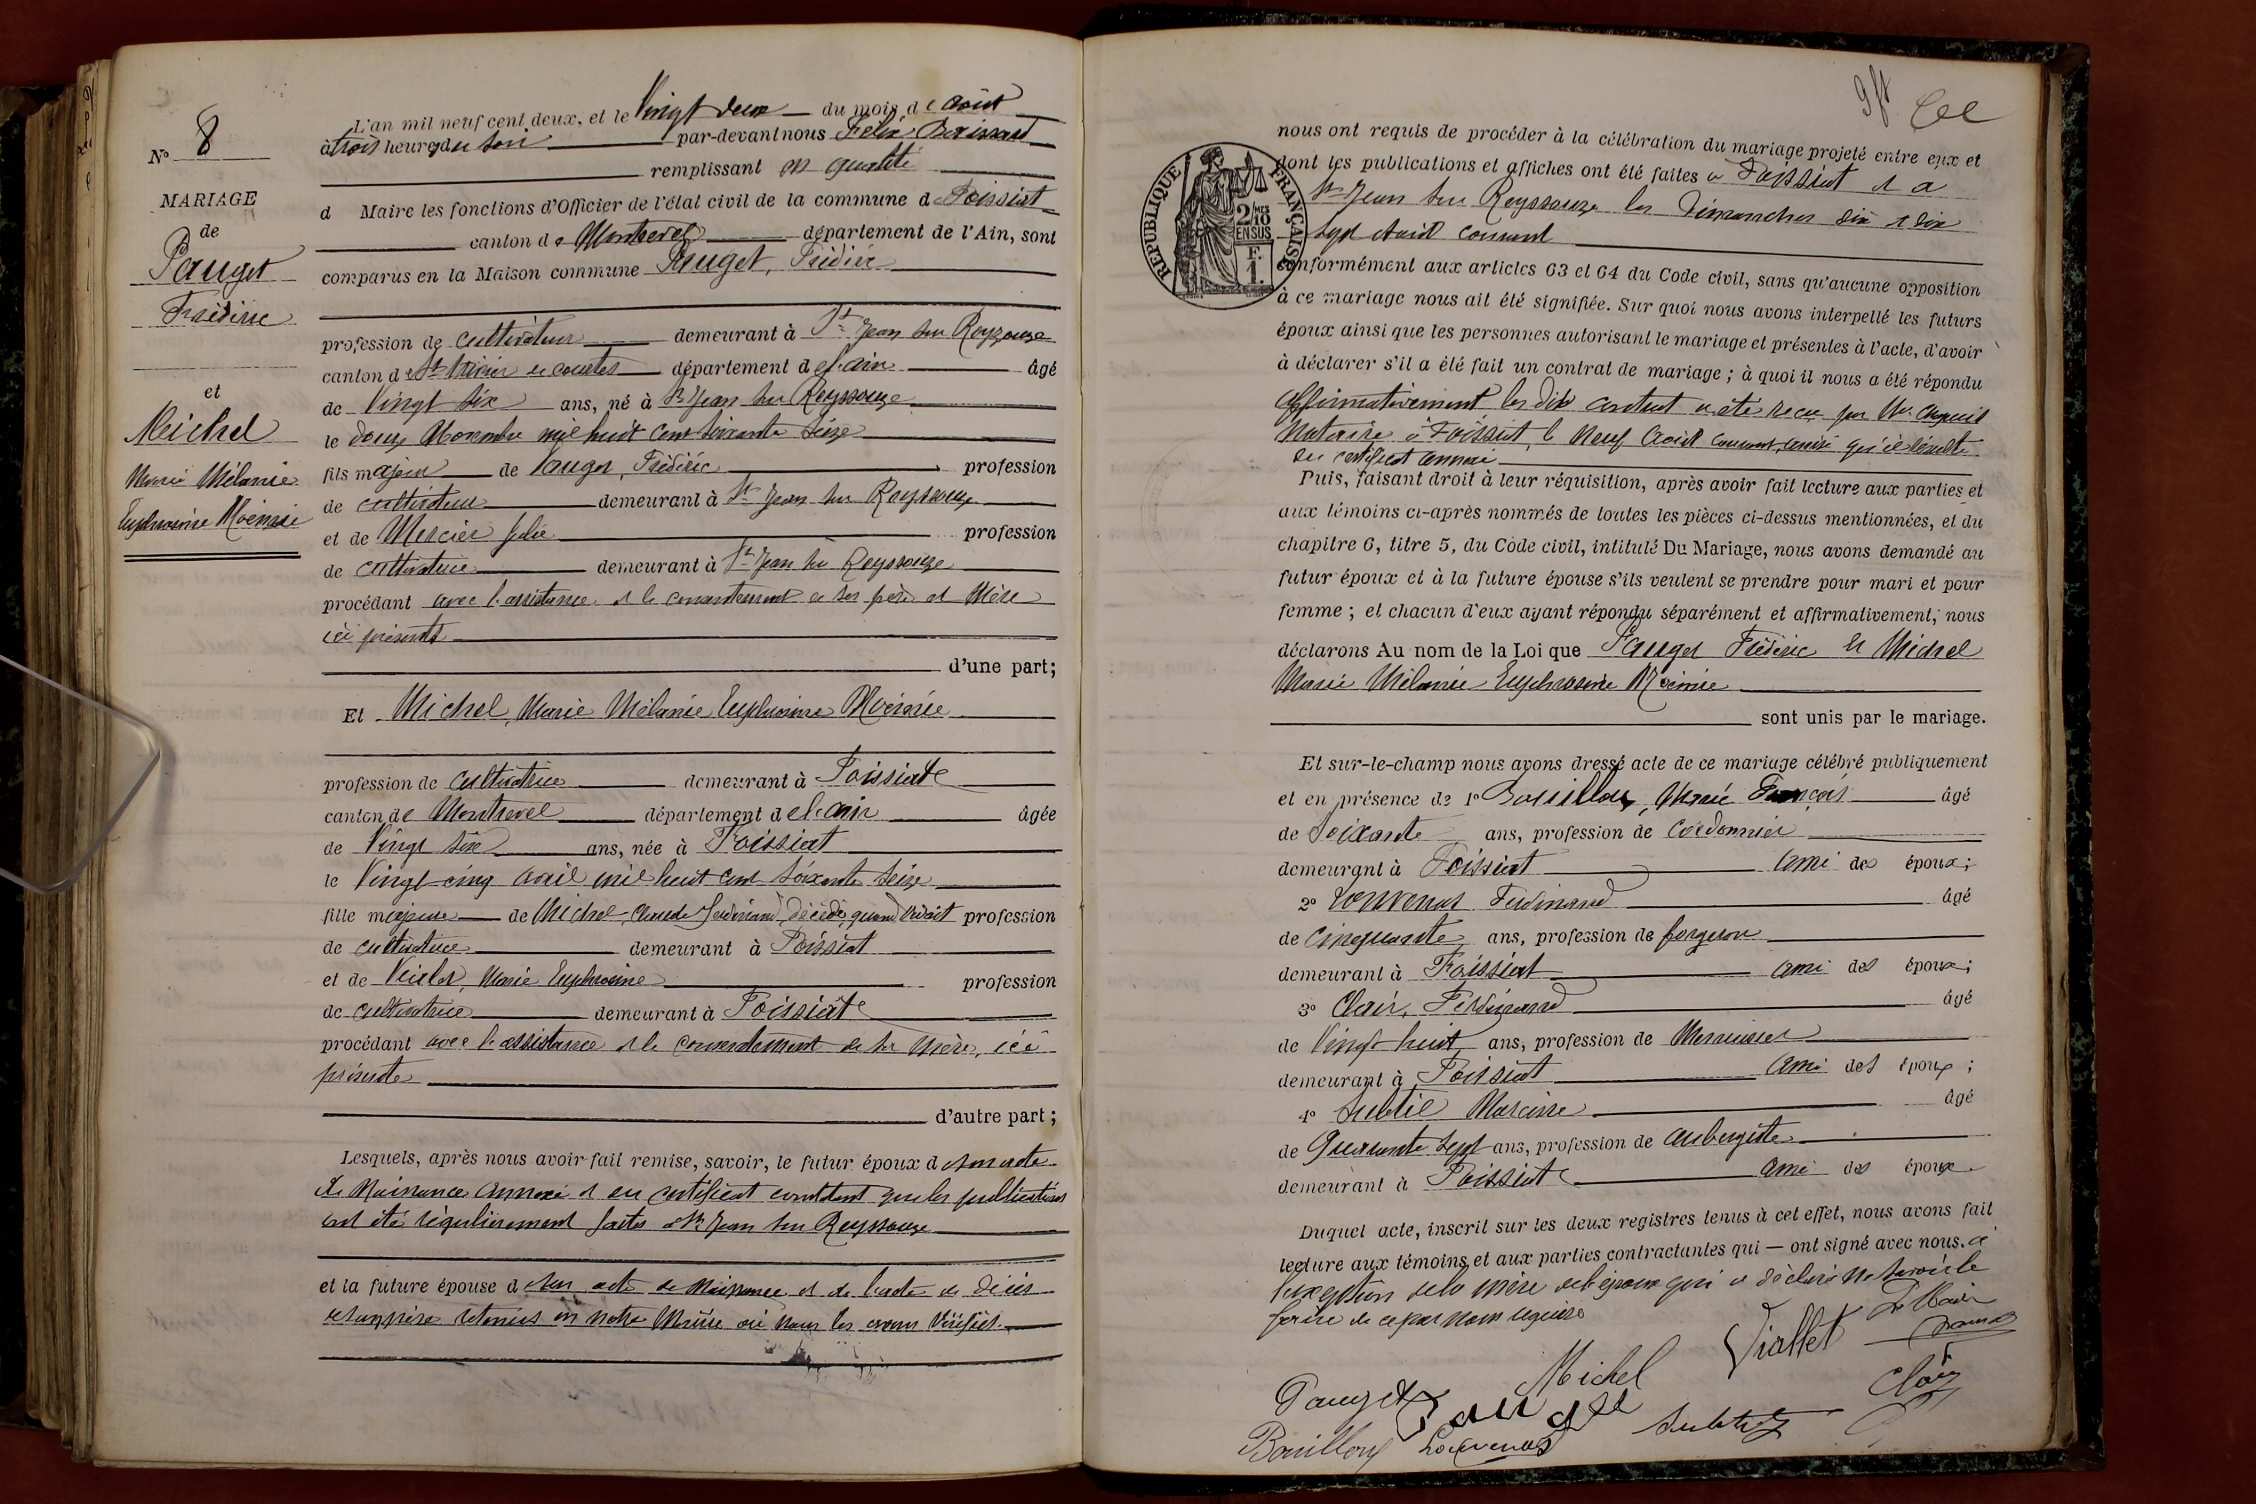 N° 8
MARIAGE
de
Pauget
Frédéric
et
Michel
Marie Mélanie
Euphrosine Noémie
L'an mil neuf cent deux, et le Vingt deux du mois de Août
à trois heures du soir par-devant nous Félix
remplissant en qualité
d Maire les fonctions d'Officier de l'état civil de la commune de Foissiat
canton de Montrevel département de l'Ain, sont
comparus en la Maison commune Pauget, Frédéric
profession de cultivateur demeurant à St Jean sur Reyssouze
canton de St Trivier de Courtes département de l'ain âgé
de Vingt six ans, né à St Jean sur Reyssouze
le douze Novembre mil huit cent soixante seize
fils majeur de Pauget, Frédéric profession
de cultivateur demeurant à St Jean sur Reyssouze
et de Mercier Julie profession
de cultivatrice demeurant à St Jean sur Reyssouze
procédant avec l'assistance et le consentement de ses père et Mère
ici présents
d'une part;
Et Michel, Marie Mélanie Euphrosine Noémie
profession de cultivatrice demeurant à Foissiat
canton de Montrevel département de l'ain âgée
de Vingt six ans, née à Foissiat
le Vingt cinq avril mil huit cent soixante seize
fille majeure de Michel, Claude Ferdinand, décédé, quand vivait profession
de cultivateur demeurant à Foissiat
et de Viallet, Marie Euphrosine profession
de cultivatrice demeurant à Foissiat
procédant avec l'assistance et le consentement de sa Mère, ici
présente
d'autre part;
Lesquels, après nous avoir fait remise, savoir, le futur époux d son acte
de Naissance annexé et un certificat constatant que les publications
ont été régulièrement faites à St Jean sur Reyssouze
et la future épouse d son acte de Naissance et de l'acte de décès
de son père retenus en notre Mairie où nous les avons vérifiés.
nous ont requis de procéder à la célébration du mariage projeté entre eux et
dont les publications et affiches ont été faites à Foissiat et à
St Jean sur Reyssouze les Dimanches dix et dix
sept Août courant
RÉPUBLIQUE FRANÇAISE
2/10 MES
EN SUS
F.
1.
conformément aux articles 63 et 64 du Code civil, sans qu'aucune opposition
à ce mariage nous ait été signifiée. Sur quoi nous avons interpellé les futurs
époux ainsi que les personnes autorisant le mariage et présentes à l'acte, d'avoir
à déclarer s'il a été fait un contrat de mariage; à quoi il nous a été répondu
affirmativement, le dit contrat a été reçu par Me
Notaire à Foissiat, le Neuf Août courant, ainsi qu'il résulte
du certificat annexé
Puis, faisant droit à leur réquisition, après avoir fait lecture aux parties et
aux témoins ci-après nommés de toutes les pièces ci-dessus mentionnées, et du
chapitre 6, titre 5, du Code civil, intitulé Du Mariage, nous avons demandé au
futur époux et à la future épouse s'ils veulent se prendre pour mari et pour
femme; et chacun d'eux ayant répondu séparément et affirmativement, nous
déclarons Au nom de la Loi que Pauget Frédéric et Michel
Marie Mélanie Euphrosine Noémie
sont unis par le mariage.
Et sur-le-champ nous avons dressé acte de ce mariage célébré publiquement
et en présence de 1° Bouilloux, Marie François âgé
de Soixante ans, profession de cordonnier
demeurant à Foissiat ami des époux;
2° Louvenas Ferdinand âgé
de Cinquante ans, profession de forgeron
demeurant à Foissiat ami des époux;
3° Clair, Ferdinand âgé
de Vingt huit ans, profession de Menuisier
demeurant à Foissiat ami des époux;
4° Subtil Narcisse âgé
de Quarante sept ans, profession de aubergiste
demeurant à Foissiat ami des époux
Duquel acte, inscrit sur les deux registres tenus à cet effet, nous avons fait
lecture aux témoins et aux parties contractantes qui — ont signé avec nous. à
l'exception de la mère de l'époux qui a déclaré ne savoir le
faire de ce par nous requise
Le Maire
Viallet
Michel
Clair
Pauget
Pauget
Subtil
Bouilloux
Louvenas